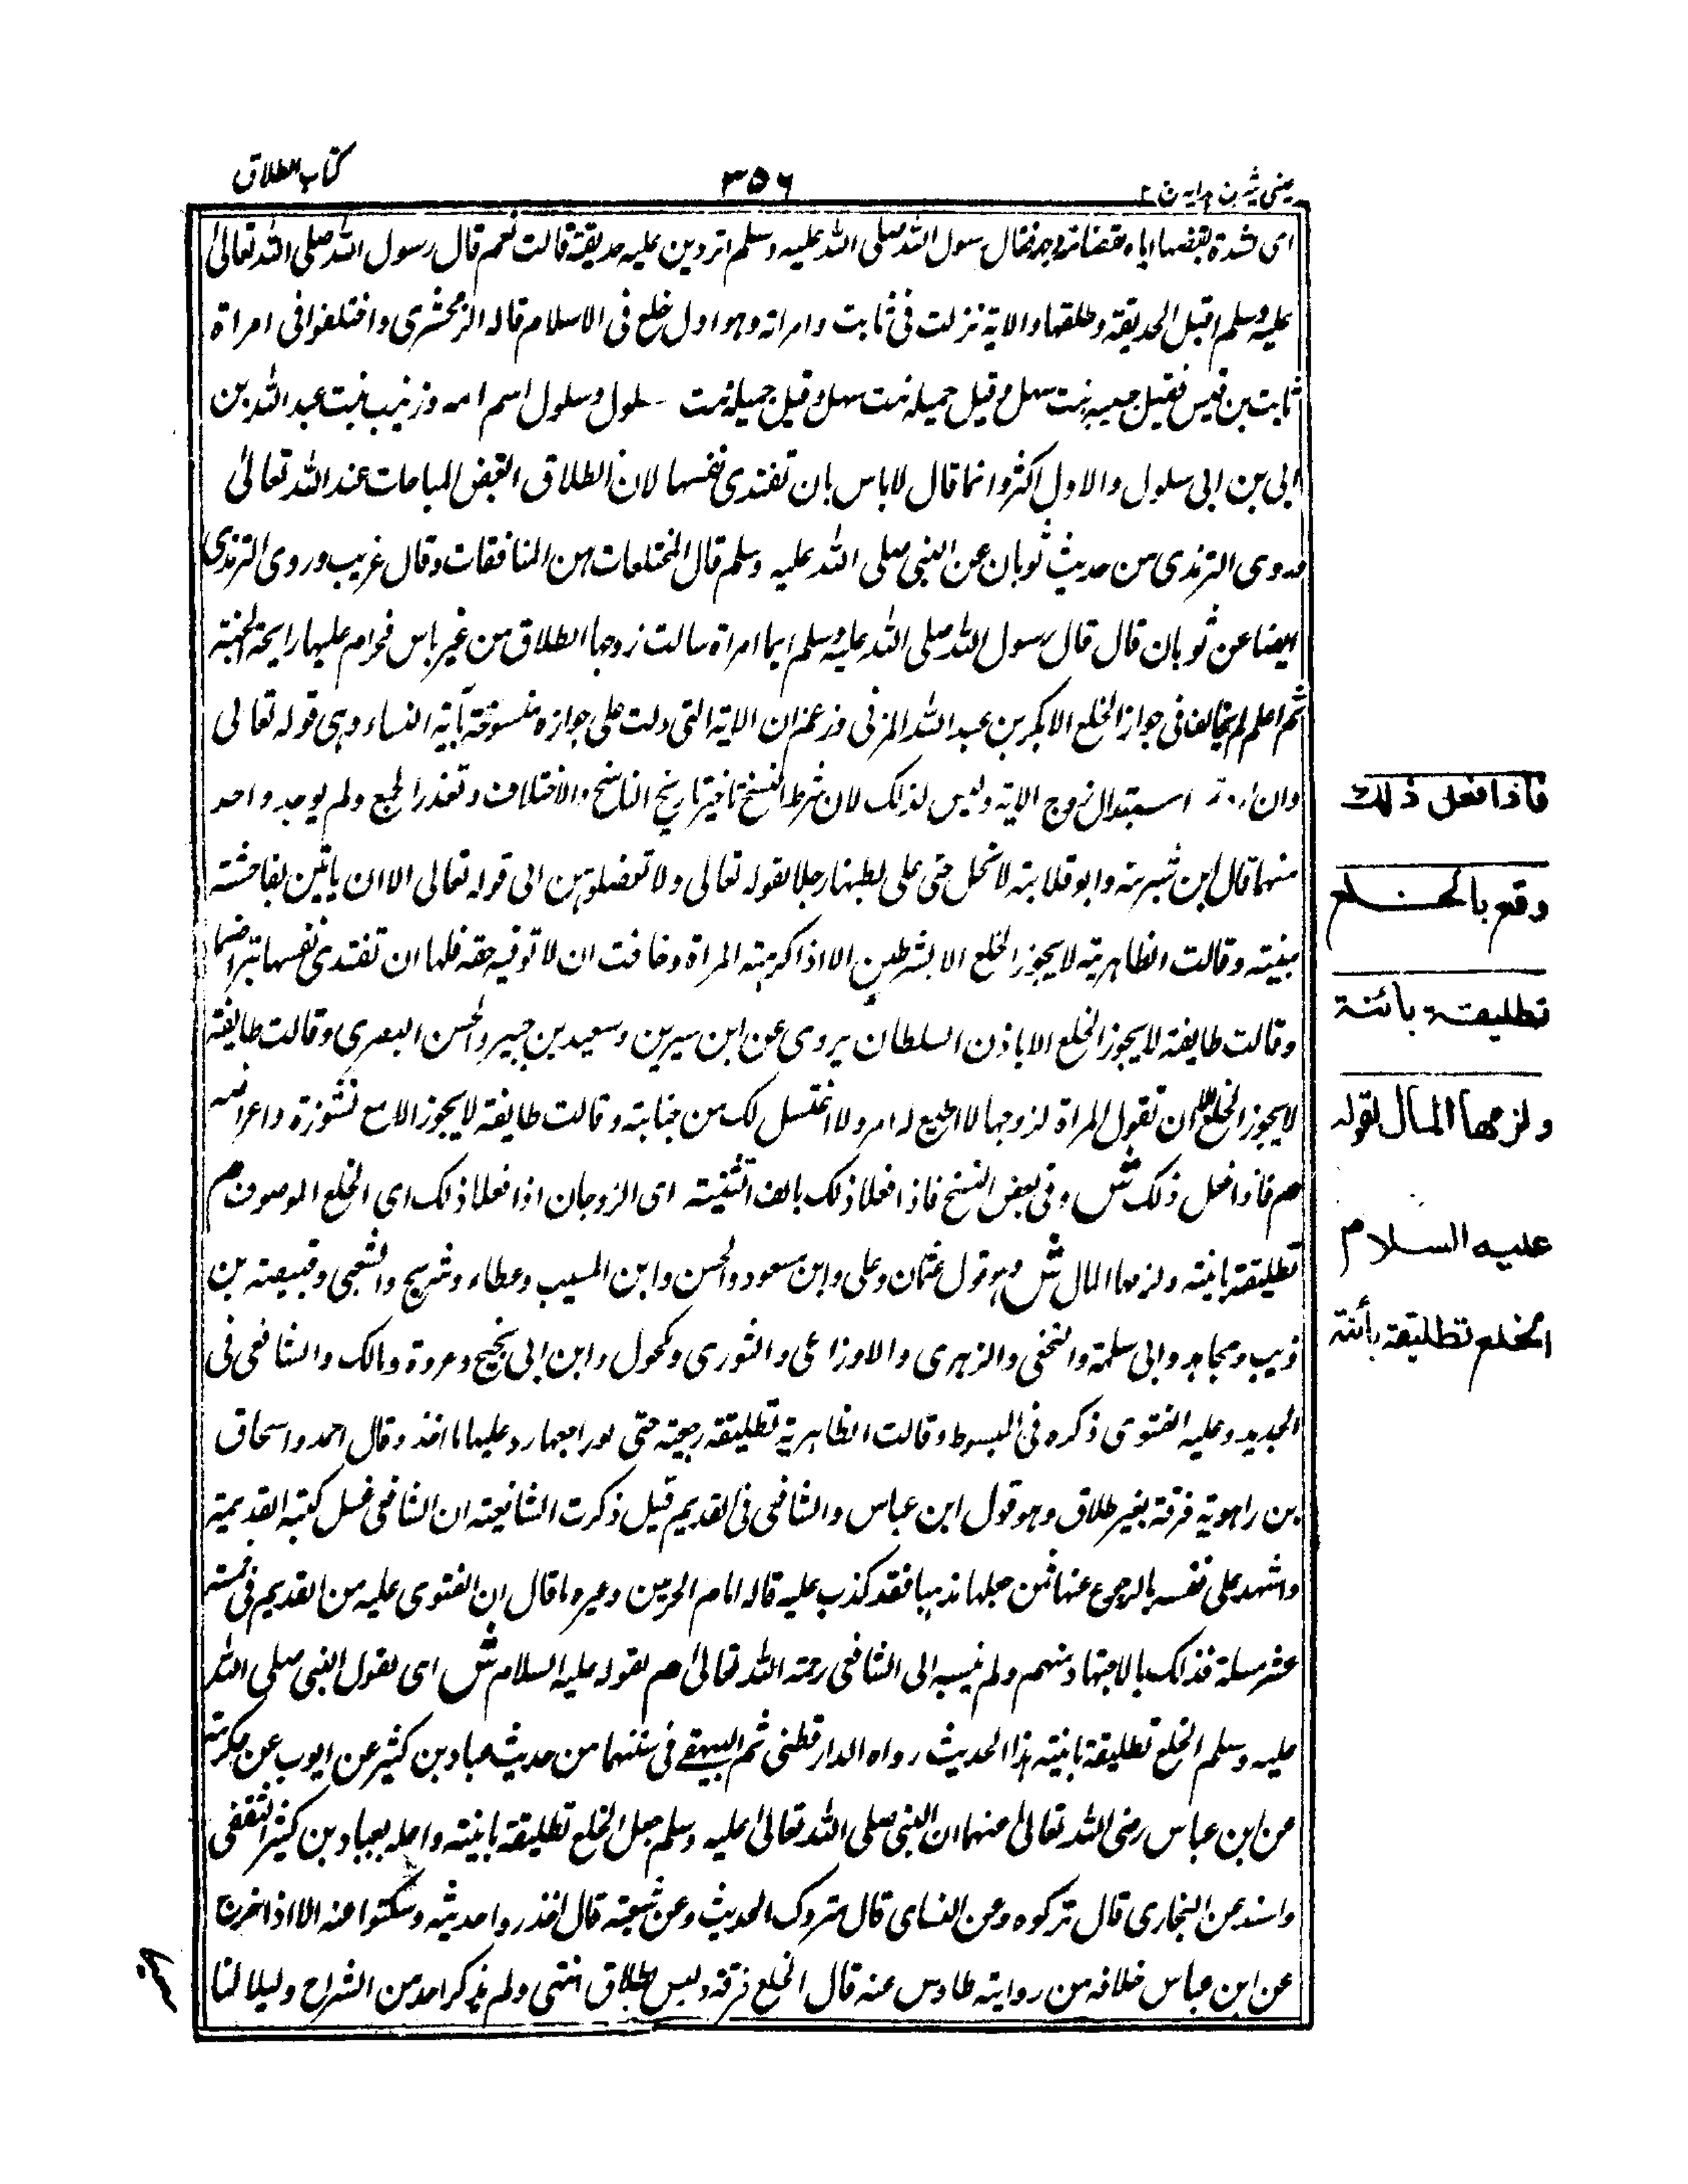 كتاب الطلاق
۳۵۶
عينى شرح هدايه ج ٢
اى شدة بغضها اياه فقال رسول الله صلى الله عليه وسلم اتردين عليه حديقة قالت نعم قال رسول الله صلى الله تعالىٰ
عليه وسلم اقبل الحديقة وطلقها والاية نزلت فى ثابت وامراته وهو اول خلع فى الاسلام قاله الزمخشرى واختلفوا فى امراة
ثابت بن قيس فقيل حبيبه بنت سهل وقيل جميله بنت سهل وقيل جميله بنت سلول وسلول اسم امه وزينب بنت عبد الله بن
ابى بن ابى سلول والاول اكثر وانما قال لاباس بان تفتدى نفسها لان الطلاق ابغض المباحات عند الله تعالىٰ
وروى الترمذى من حديث ثوبان عن النبى صلى الله عليه وسلم قال المختلعات هن المنافقات وقال غريب وروى الترمذى
ايضا عن ثوبان قال قال رسول الله صلى الله عليه وسلم ايما امراة سالت زوجها الطلاق من غير باس فحرام عليها رايحة الجنة
ثم اعلم لم يخالف فى جواز الخلع الا بكر بن عبد الله المزنى وزعم ان الاية التى دلت على جوازه منسوخة بآية النساء وهى قوله تعالى
وان استبدال زوج الاية وليس لذلك لان شرط النسخ تاخير تاريخ الناسخ والاختلاف وتعذر الجمع ولم يوجد واحد
منهما قال ابن شبرمة وابو قلابة لا تحل حتى على بطنها رجلا لقوله تعالى ولا تعضلوهن الى قوله تعالى الا ان ياتين بفاحشة
مبينة وقالت الظاهرية لا يجوز الخلع الا بشرطين الا اذا كرهته المراة وخافت ان لا توفيه حقه فلها ان تفتدى نفسها بتراضهما
وقالت طايفة لا يجوز الخلع الا باذن السلطان يروى عن ابن سيرين وسعيد بن جبير والحسن البصرى وقالت طايفة
لا يجوز الخلع الا ان تقول المراة لزوجها لا اطيع له امر ولا اغتسل لك من جنابة وقالت طايفة لا يجوز الا مع نشوزة واعراضه
صم فاذا فعل ذلك ش وفى بعض النسخ فاذا فعلا ذلك بالف التثنية اى الزوجان اذا فعلا ذلك اى الخلع الموصوف صم
تطليقة باينة ولزمها المال ش وهو قول عثمان وعلى وابن مسعود والحسن وابن المسيب وعطاء وشريح والشعبى وقبيصة بن
ذويب ومجاهد وابى سلمة والنخعى والزهرى والاوزاعى والثورى ومكحول وابن ابى نجيح وعروة ومالك والشافعى فى
الجديد وعليه الفتوى ذكره فى المبسوط وقالت الظاهرية تطليقة رجعية حتى لو راجعها رد عليها ما اخذ وقال احمد واسحاق
ابن راهوية فرقة بغير طلاق وهو قول ابن عباس والشافعى فى القديم قيل ذكرت الشافعية ان الشافعى غسل كتبه القديمة
واشهد على نفسه بالرجوع عنها فمن جعلها مذهبا فقد كذب عليه قاله امام الحرمين وغيره وما قال ان الفتوى عليه من القديم فى
عشر مسلة فذلك بالاجتهاد منهم ولم نيسبه الى الشافعى رحمة الله تعالىٰ صم لقوله عليه السلام ش اى لقول النبى صلى الله
عليه وسلم الخلع تطليقة باينة هذا الحديث رواه الدارقطنى ثم البيهقى فى سننهما من حديث عباد بن كثير عن ايوب عن عكرمة
عن ابن عباس رضى الله تعالىٰ عنهما ان النبى صلى الله تعالىٰ عليه وسلم جعل الخلع تطليقة باينة واعله بعباد بن كثير الثقفى
واسند عن البخارى قال تركوه وعن النساى قال متروك الحديث وعن شعبة قال احذروا حديثه وسكتوا عنه الا اذا اخرج
عن ابن عباس خلافه من رواية طاوس عنه قال الخلع فرقة وليس بطلاق انتهى ولم يذكر احد من الشراح دليلا لنا
فاذا فعل ذلك
وقع بالخلع
تطليقة بائنة
ولزمها المال لقوله
عليه السلام
الخلع تطليقة بائنة